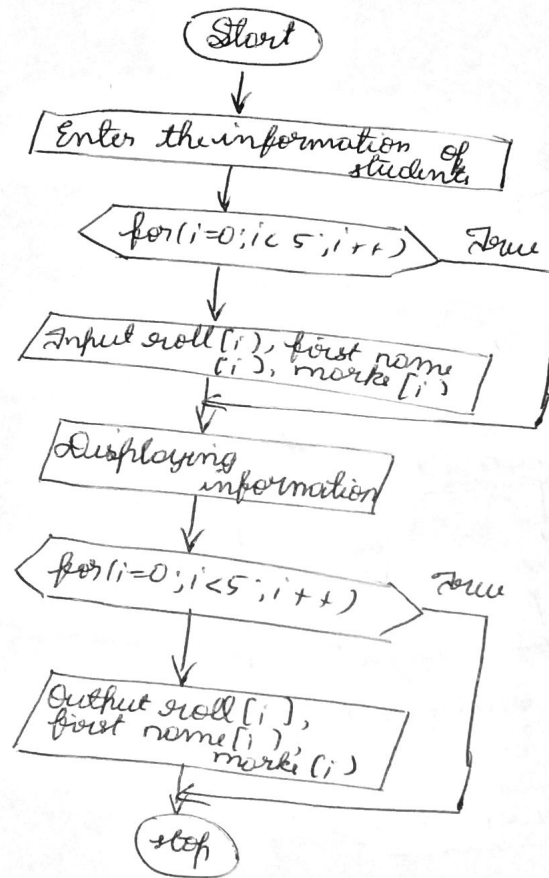 Start
Enter the information of
students
for(i=0;i<5;i++)
True
Input roll[i), first name
[i), marks[i)
Displaying
information
for(i=0;i<5;i++)
True
Output roll[i],
first name[i],
marks[i)
stop